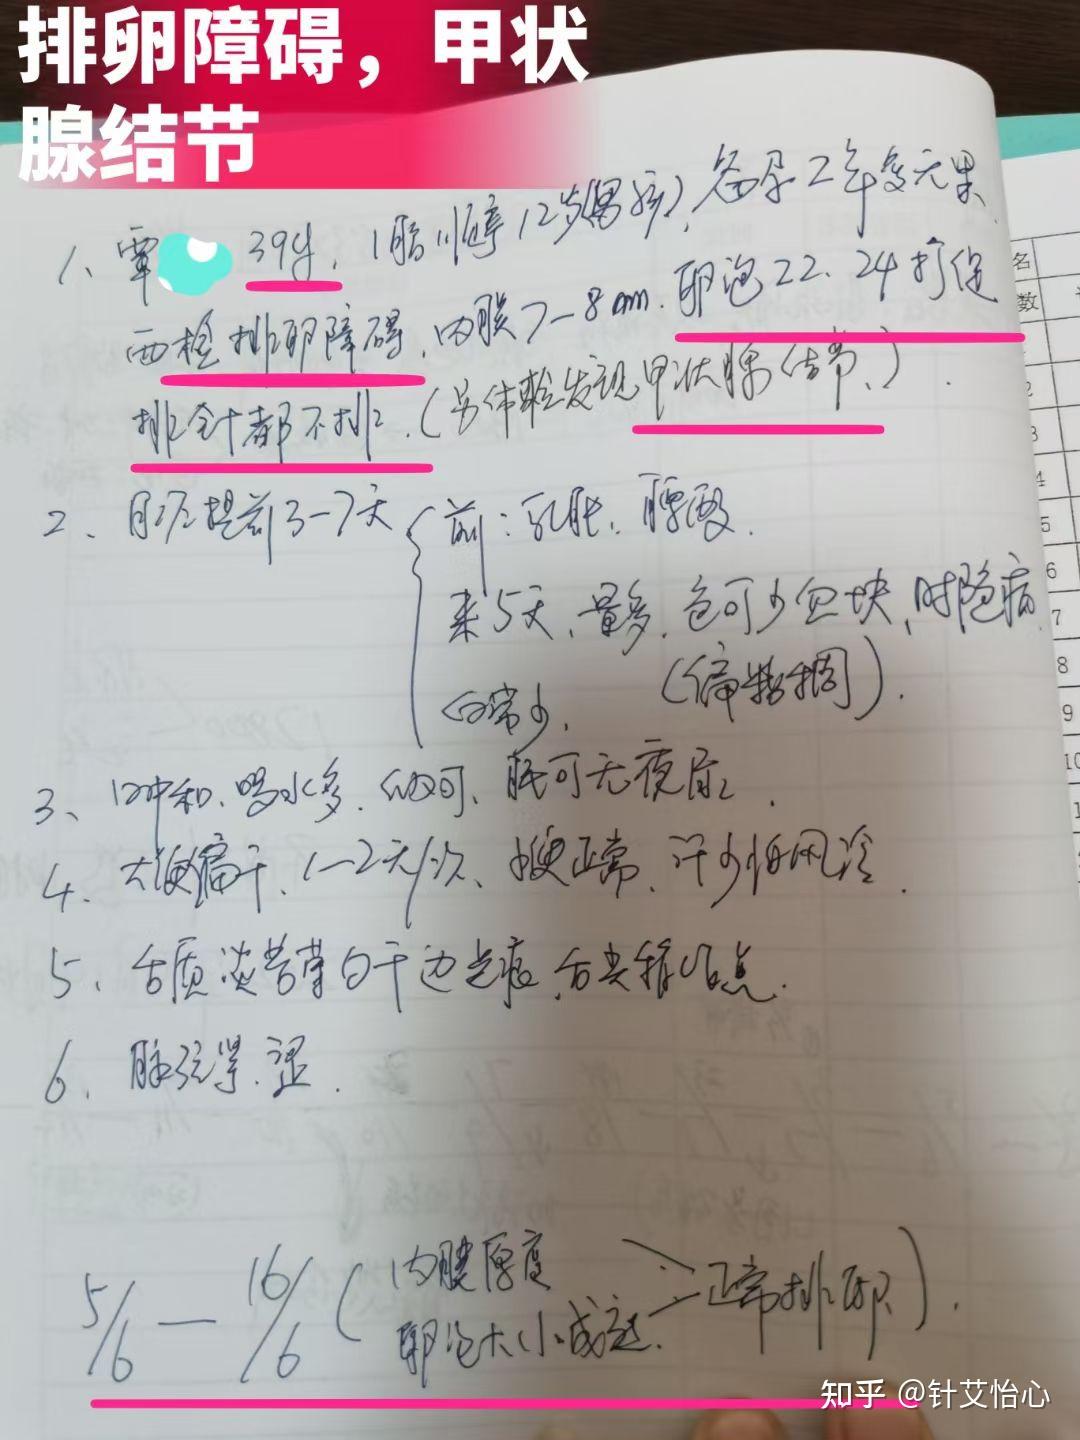 排卵障碍，甲状
腺结节
1、覃 39y，1胎顺产12岁(男孩)，备孕2年多无果、
西检排卵障碍、内膜7-8mm、卵泡22、24打促
排针都不排、(另体检发现甲状腺结节、)、
2、月经提前3-7天 前：乳胀、腰酸、
来5天、量多、色可少血块、时隐痛
(偏粘稠)、
白带少、
3、口中和、喝水多、纳可、眠可无夜尿、
4、大便偏干、1-2天/次、小便正常、汗少怕风冷、
5、舌质淡苔薄白干边齿痕、舌尖
6、脉弦紧、涩、
5/6 — 16/6 (内膜厚度
卵泡大小成熟、 正常排卵)、
名
数
2
3
4
5
6
7
8
9
10
知乎 @针艾怡心